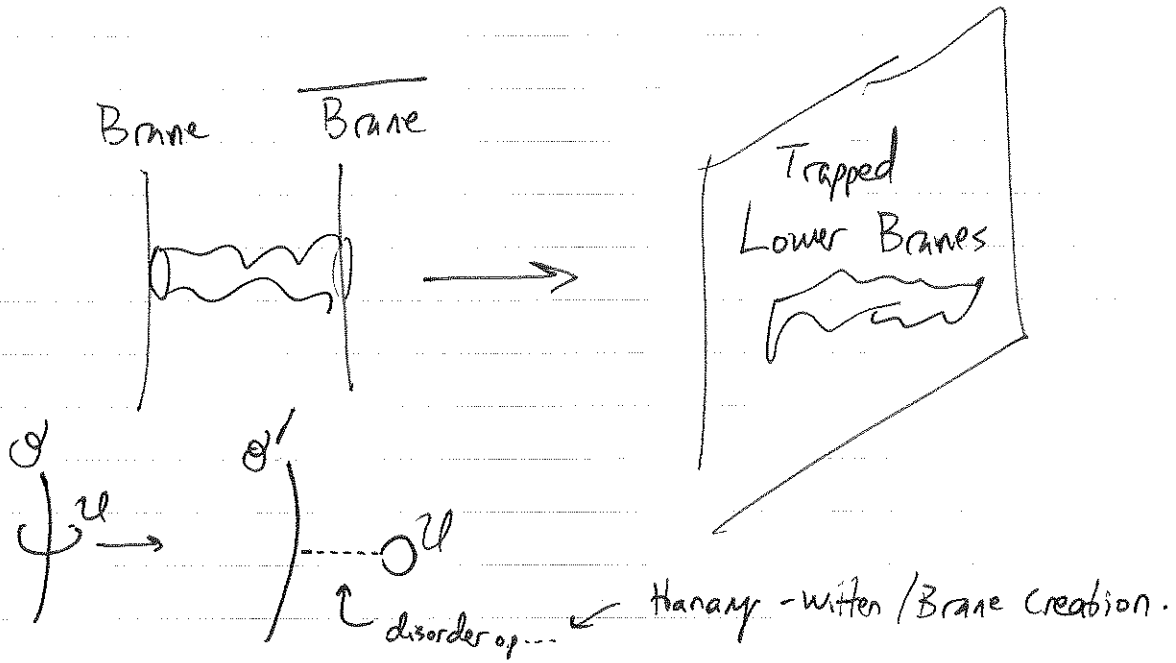 Brane
Brane
Trapped
Lower Branes
O
U
O'
U
disorder op....
Hanany-Witten/Brane Creation.